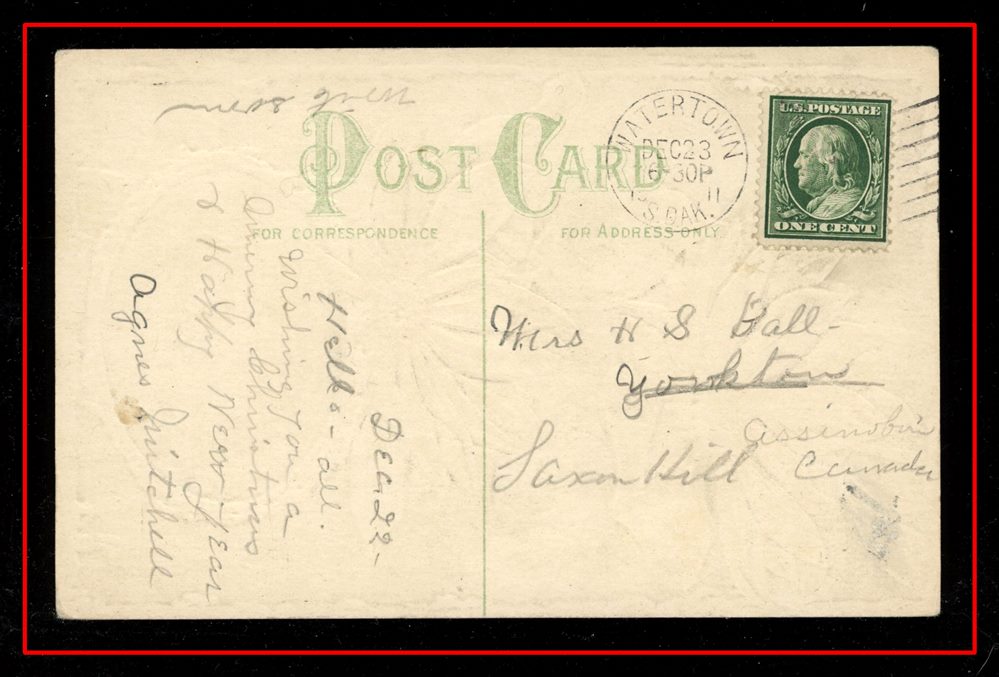 POST CARD
FOR CORRESPONDENCE
FOR ADDRESS ONLY
WATERTOWN
DEC 23
6-30P
'11
S.DAK.
U.S. POSTAGE
ONE CENT
Dec 22-
Hello-all.
Wishing You a
Merry Christmas
& Happy New Year
Agnes Mitchell
Mrs H S Ball-
Yorkton
Saxon Hill
Assinoboin
Canada